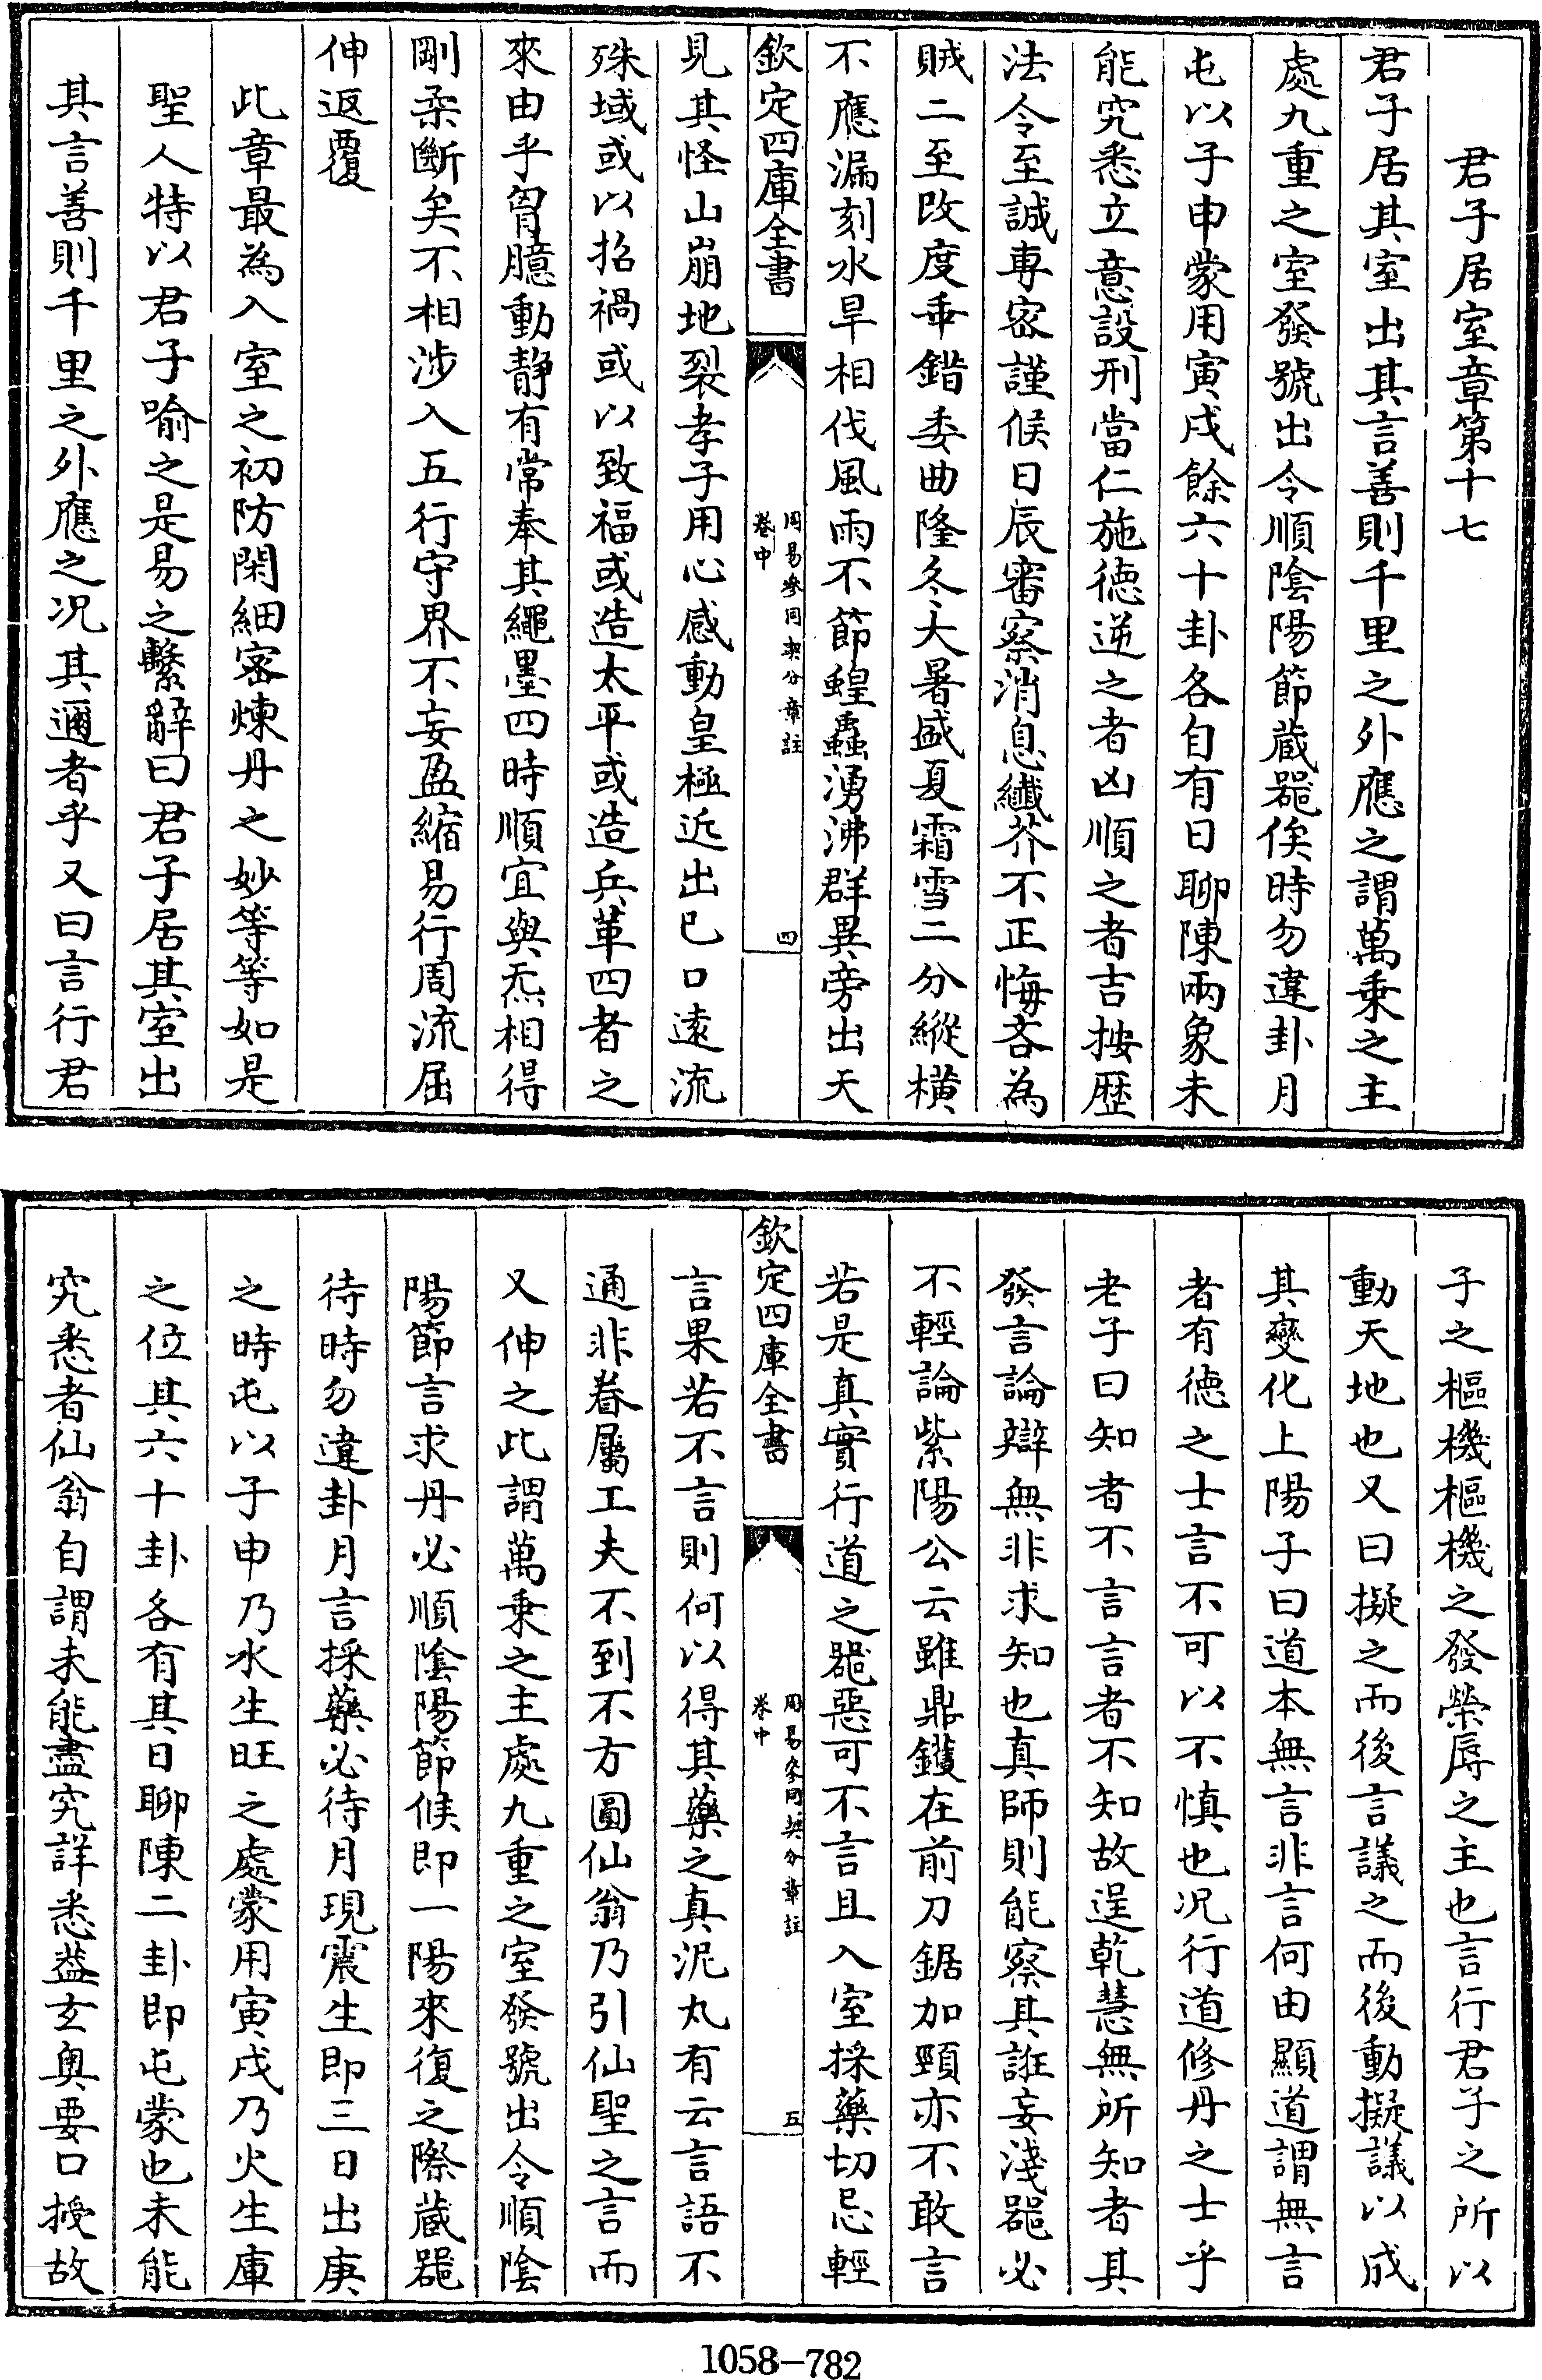 君子居室章第十七
君子居其室出其言善則千里之外應之謂萬乗之主
處九重之室發號出令順陰陽節蔵器俟時勿違卦月
屯以子申蒙用寅戌餘六十卦各自有日聊陳兩象未
能究悉立意設刑當仁施徳逆之者凶順之者吉按歴
法令至誠専宻謹候日辰審察消息纎芥不正悔吝為
賊二至改度乖錯委曲隆冬大暑盛夏霜雪二分縱橫
不應漏刻水旱相伐風雨不節蝗蟲湧沸群異旁出天
欽定四庫全書
周易參同契分章註
卷中
四
見其怪山崩地裂孝子用心感動皇極近出已口遠流
殊域或以招禍或以致福或造太平或造兵革四者之
來由乎胷臆動静有常奉其繩墨四時順宜與炁相得
剛柔斷矣不相涉入五行守界不妄盈縮易行周流屈
伸返覆
此章最為入室之初防閑細宻煉丹之妙等等如是
聖人特以君子喻之是易之繫辭曰君子居其室出
其言善則千里之外應之况其邇者乎又曰言行君
子之樞機樞機之發榮辱之主也言行君子之所以
動天地也又曰擬之而後言議之而後動擬議以成
其變化上陽子曰道本無言非言何由顯道謂無言
者有徳之士言不可以不慎也况行道修丹之士乎
老子曰知者不言言者不知故逞乾慧無所知者其
發言論辯無非求知也真師則能察其誑妄淺器必
不輕論紫陽公云雖鼎鑊在前刀鋸加頸亦不敢言
若是真實行道之器惡可不言且入室採藥切忌輕
欽定四庫全書
周易參同契分章註
卷中
五
言果若不言則何以得其藥之真泥丸有云言語不
通非眷屬工夫不到不方圓仙翁乃引仙聖之言而
又伸之此謂萬乗之主處九重之室發號出令順陰
陽節言求丹必順陰陽節候即一陽來復之際蔵器
待時勿違卦月言採藥必待月現震生即三日出庚
之時屯以子申乃水生旺之處蒙用寅戌乃火生庫
之位其六十卦各有其日聊陳二卦即屯蒙也未能
究悉者仙翁自謂未能盡究詳悉葢玄奥要口授故
1058-782